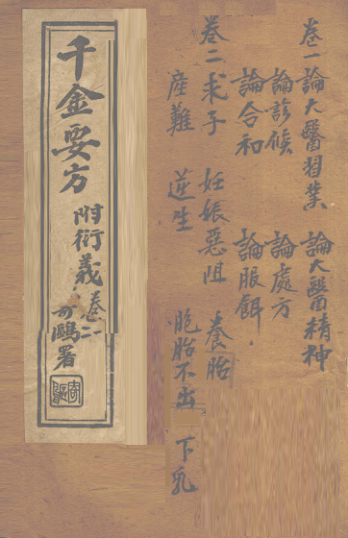 卷一論大醫習業　論大醫精神
論診候　論處方
論合和　論服餌
卷二求子　妊娠惡阻　養胎
産難　逆生　胞胎不出　下乳
千金要方
附衍義
卷二
鷗署